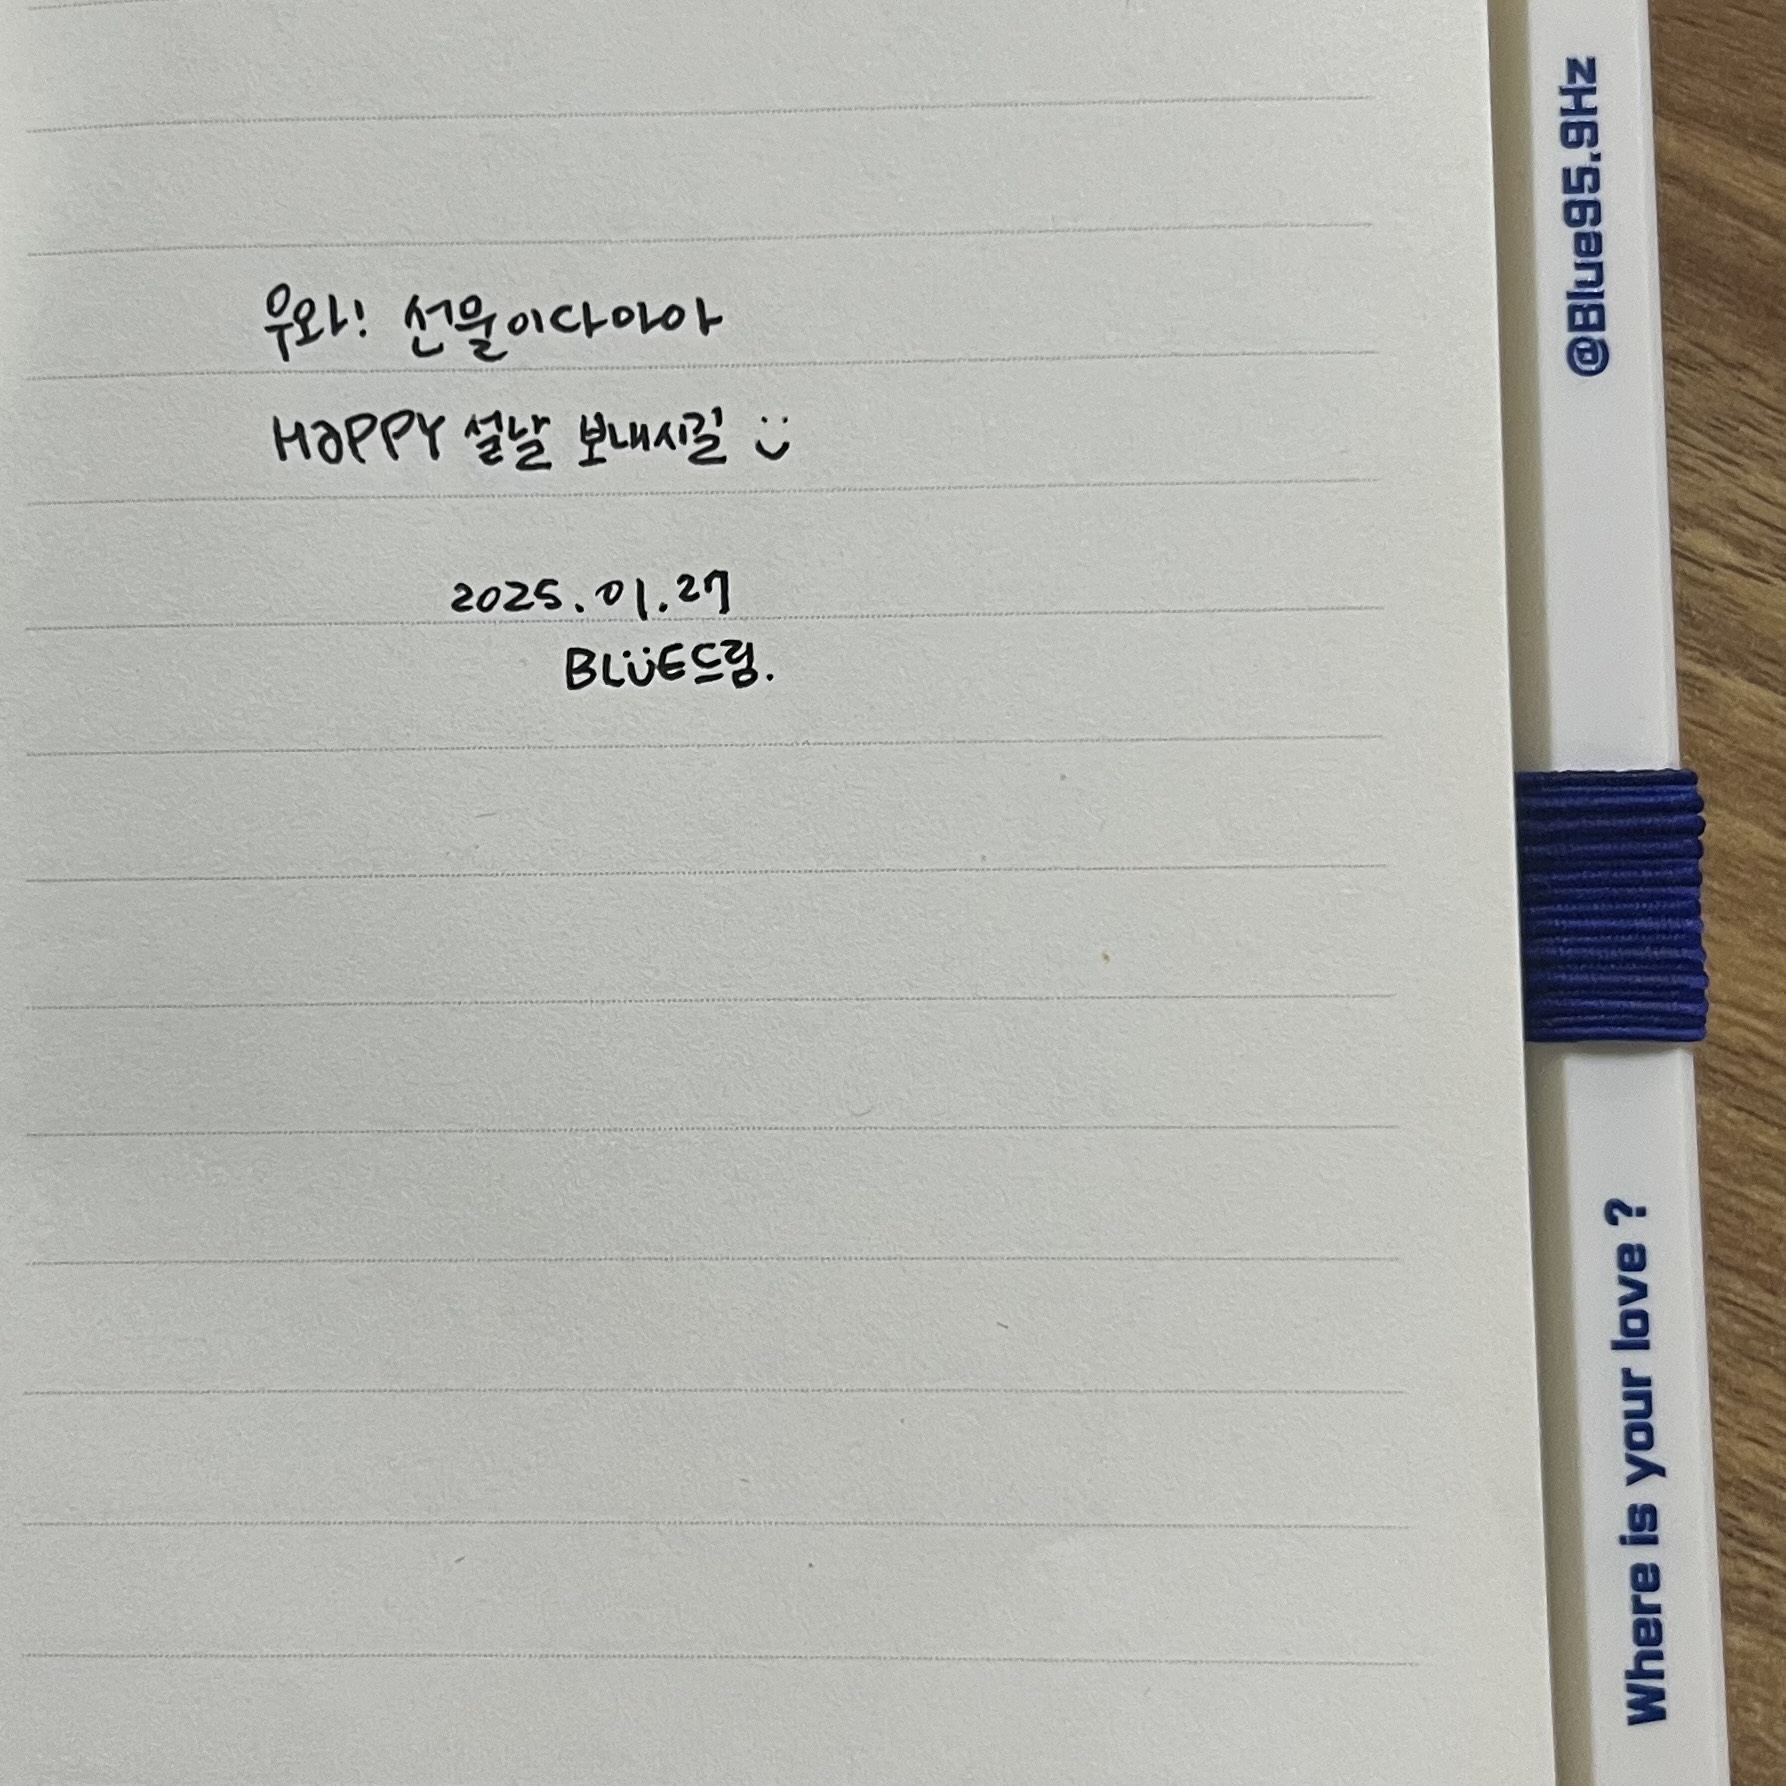 우와! 선물이다아아
HaPPY 설날 보내시길 :)
2025.01.27
BLUE드림.
@Blue95.9Hz
Where is your love ?